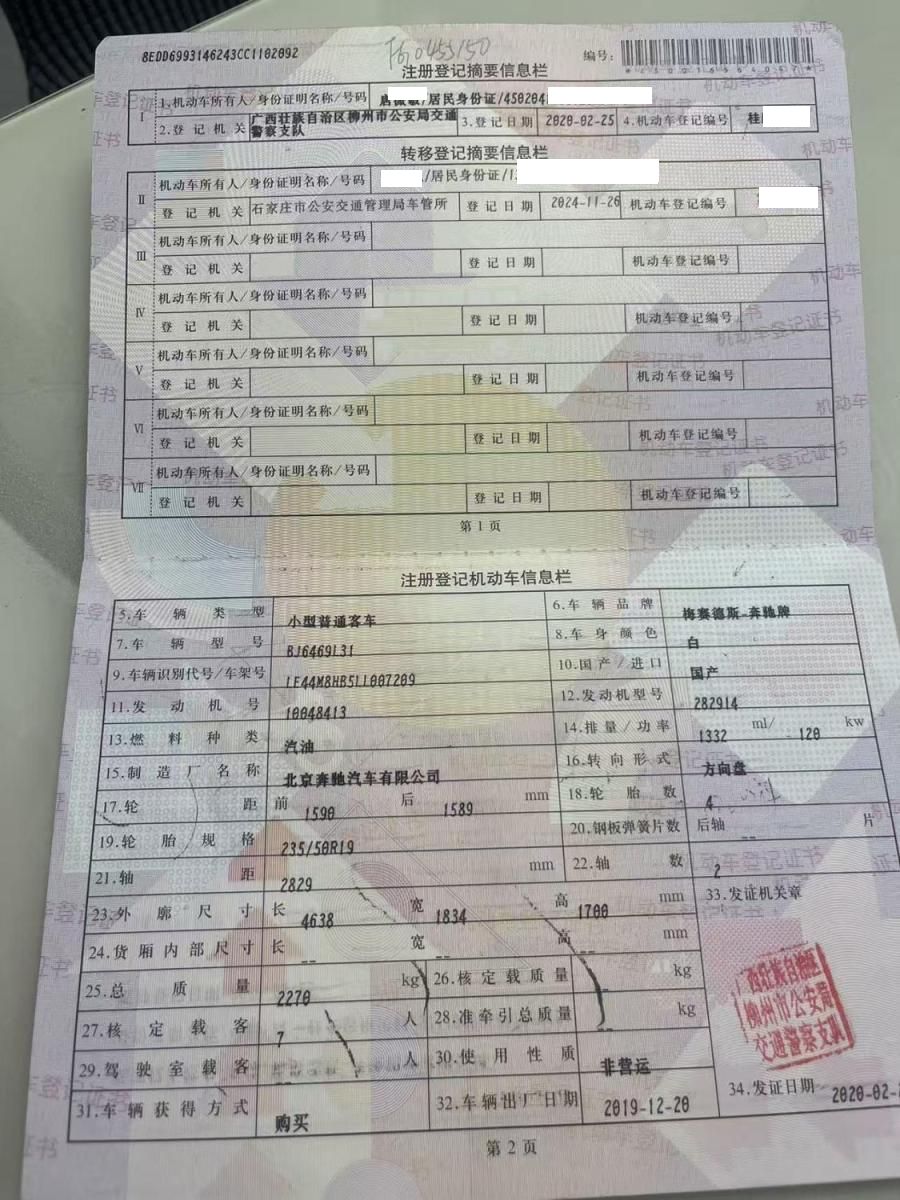 8EDD6993146243CC1102092
编号:
注册登记摘要信息栏
I 1.机动车所有人/身份证明名称/号码 /居民身份证/450204
2.登记机关 广西壮族自治区柳州市公安局交通警察支队 3.登记日期 2020-02-25 4.机动车登记编号 桂
转移登记摘要信息栏
II 机动车所有人/身份证明名称/号码 /居民身份证/1
登记机关 石家庄市公安交通管理局车管所 登记日期 2024-11-26 机动车登记编号
III 机动车所有人/身份证明名称/号码
登记机关 登记日期 机动车登记编号
IV 机动车所有人/身份证明名称/号码
登记机关 登记日期 机动车登记编号
V 机动车所有人/身份证明名称/号码
登记机关 登记日期 机动车登记编号
VI 机动车所有人/身份证明名称/号码
登记机关 登记日期 机动车登记编号
VII 机动车所有人/身份证明名称/号码
登记机关 登记日期 机动车登记编号
第1页
注册登记机动车信息栏
5.车辆类型 小型普通客车 6.车辆品牌 梅赛德斯-奔驰牌
7.车辆型号 BJ6469L31 8.车身颜色 白
9.车辆识别代号/车架号 LE44M8HB5LL007209 10.国产/进口 国产
11.发动机号 10048413 12.发动机型号 282914
13.燃料种类 汽油 14.排量/功率 1332 ml/ 120 kw
15.制造厂名称 北京奔驰汽车有限公司 16.转向形式 方向盘
17.轮距 前 1590 后 1589 mm 18.轮胎数 4
19.轮胎规格 235/50R19 20.钢板弹簧片数 后轴 -- 片
21.轴距 2829 mm 22.轴数 2
23.外廓尺寸 长 4638 宽 1834 高 1700 mm 33.发证机关章
24.货厢内部尺寸 长 -- 宽 -- 高 -- mm
25.总质量 2270 kg 26.核定载质量 -- kg
27.核定载客 7 人 28.准牵引总质量 -- kg
29.驾驶室载客 -- 人 30.使用性质 非营运
31.车辆获得方式 购买 32.车辆出厂日期 2019-12-20 34.发证日期 2020-02-
西壮族自治区
柳州市公安局
交通警察支队
第2页